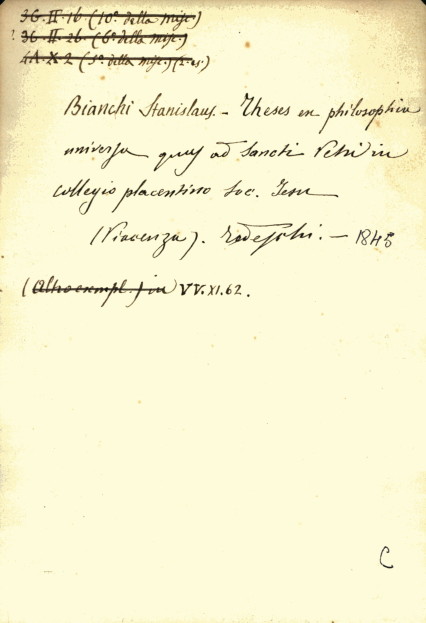 36.II.16 (10º della misc.)
36.II.26 (6º della misc.)
4A.X.2 (5º della misc.) (2 es.)
Bianchi Stanislaus. - Theses ex philosophia
universa quas ad Sancti Petri in
collegio placentino Soc. Jesu
(Piacenza). Tedeschi. - 1845
(Altro exempl.) in VV.XI.62.
C